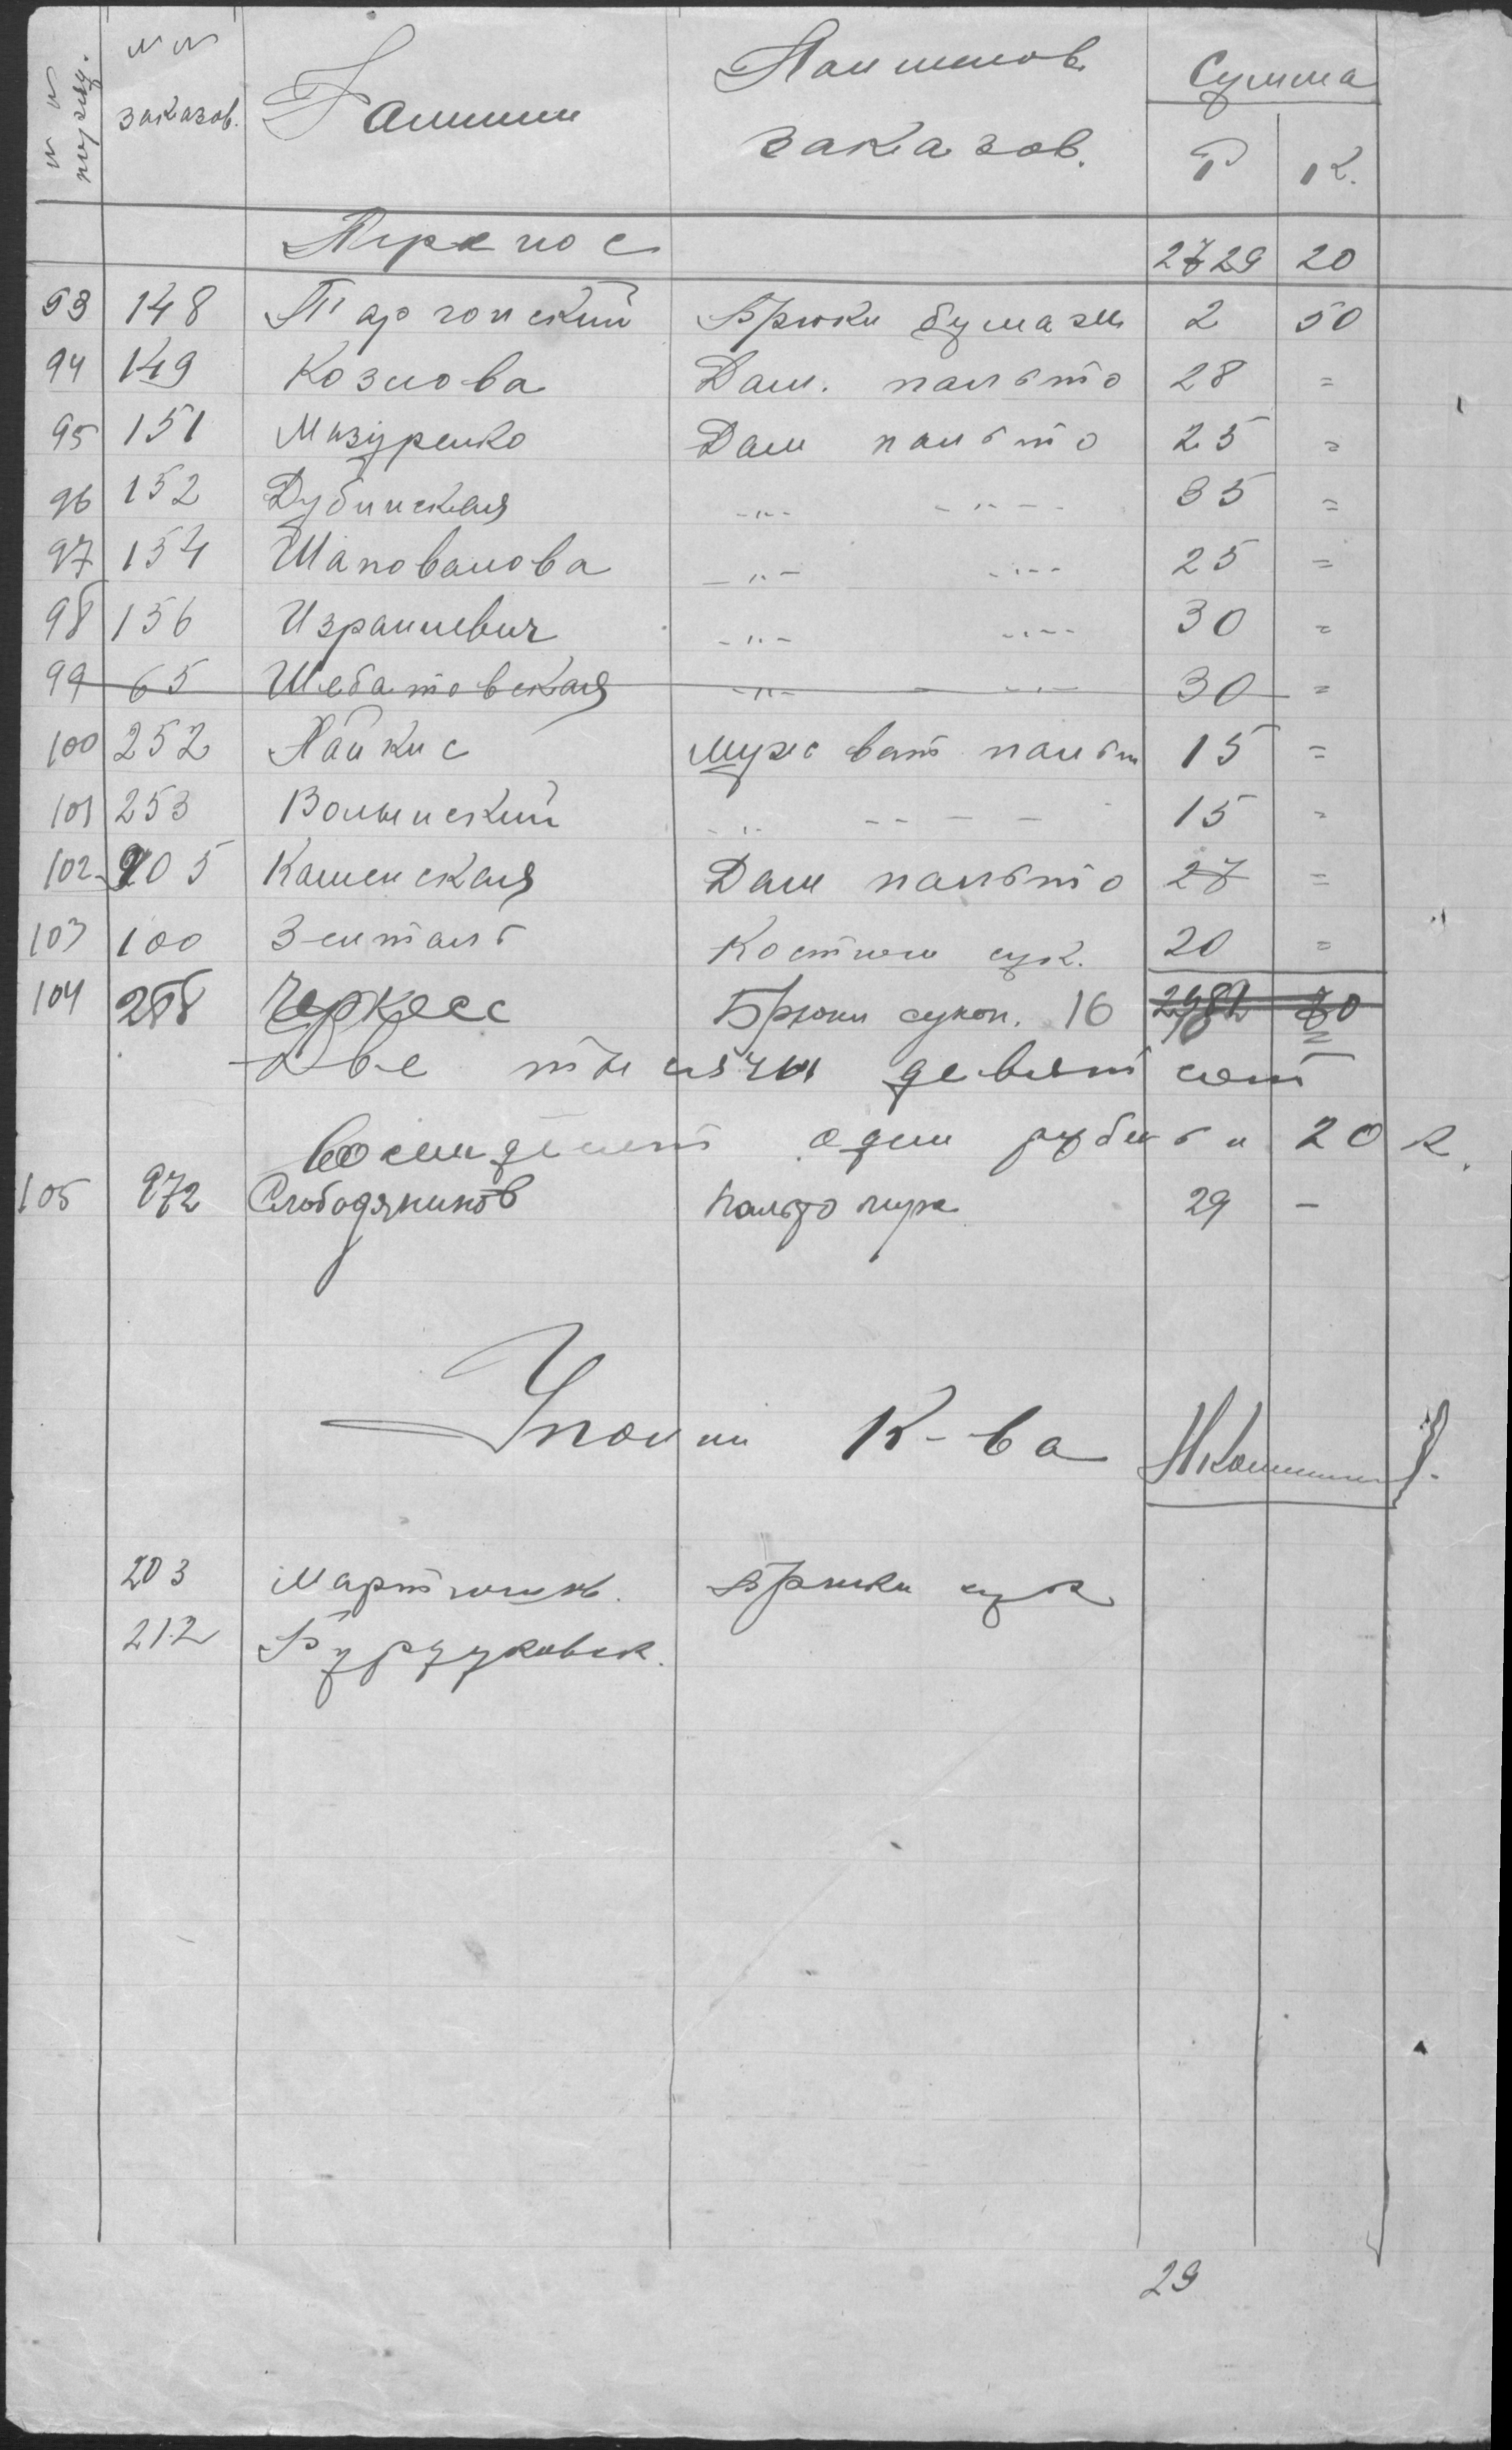 № № по ряд.
№ № заказов.
Фамилии
Наименов. заказов.
Сумма
Р К.
Перенос 2729 20
93 148 Таргонский Брюки бумаж 2 50
94 149 Козлова Дам. пальто 28 =
95 151 Мазуренко Дам пальто 25 =
96 152 Дубинская -"- -"- 35 =
97 154 Шаповалова -"- -"- 25 =
98 156 Израилевич -"- -"- 30 =
99 65 Шебатовская -"- -"- 30 =
100 252 Найкис Муж ват пальт 15 =
101 253 Волынский -"- - - - 15 =
102 205 Каменская Дам пальто 27 =
103 100 Зенталь Костюм сук. 20 =
104 258 Черкесс Брюки сукон. 16 2981 70
Две тысячи девятсот
восемдесят один рубль и 20 к.
105 972 Слободяников Пальто муж 29 -
Уполн К-ва
203 Мартынов. Брюки сук
212 Бурдуковск.
29